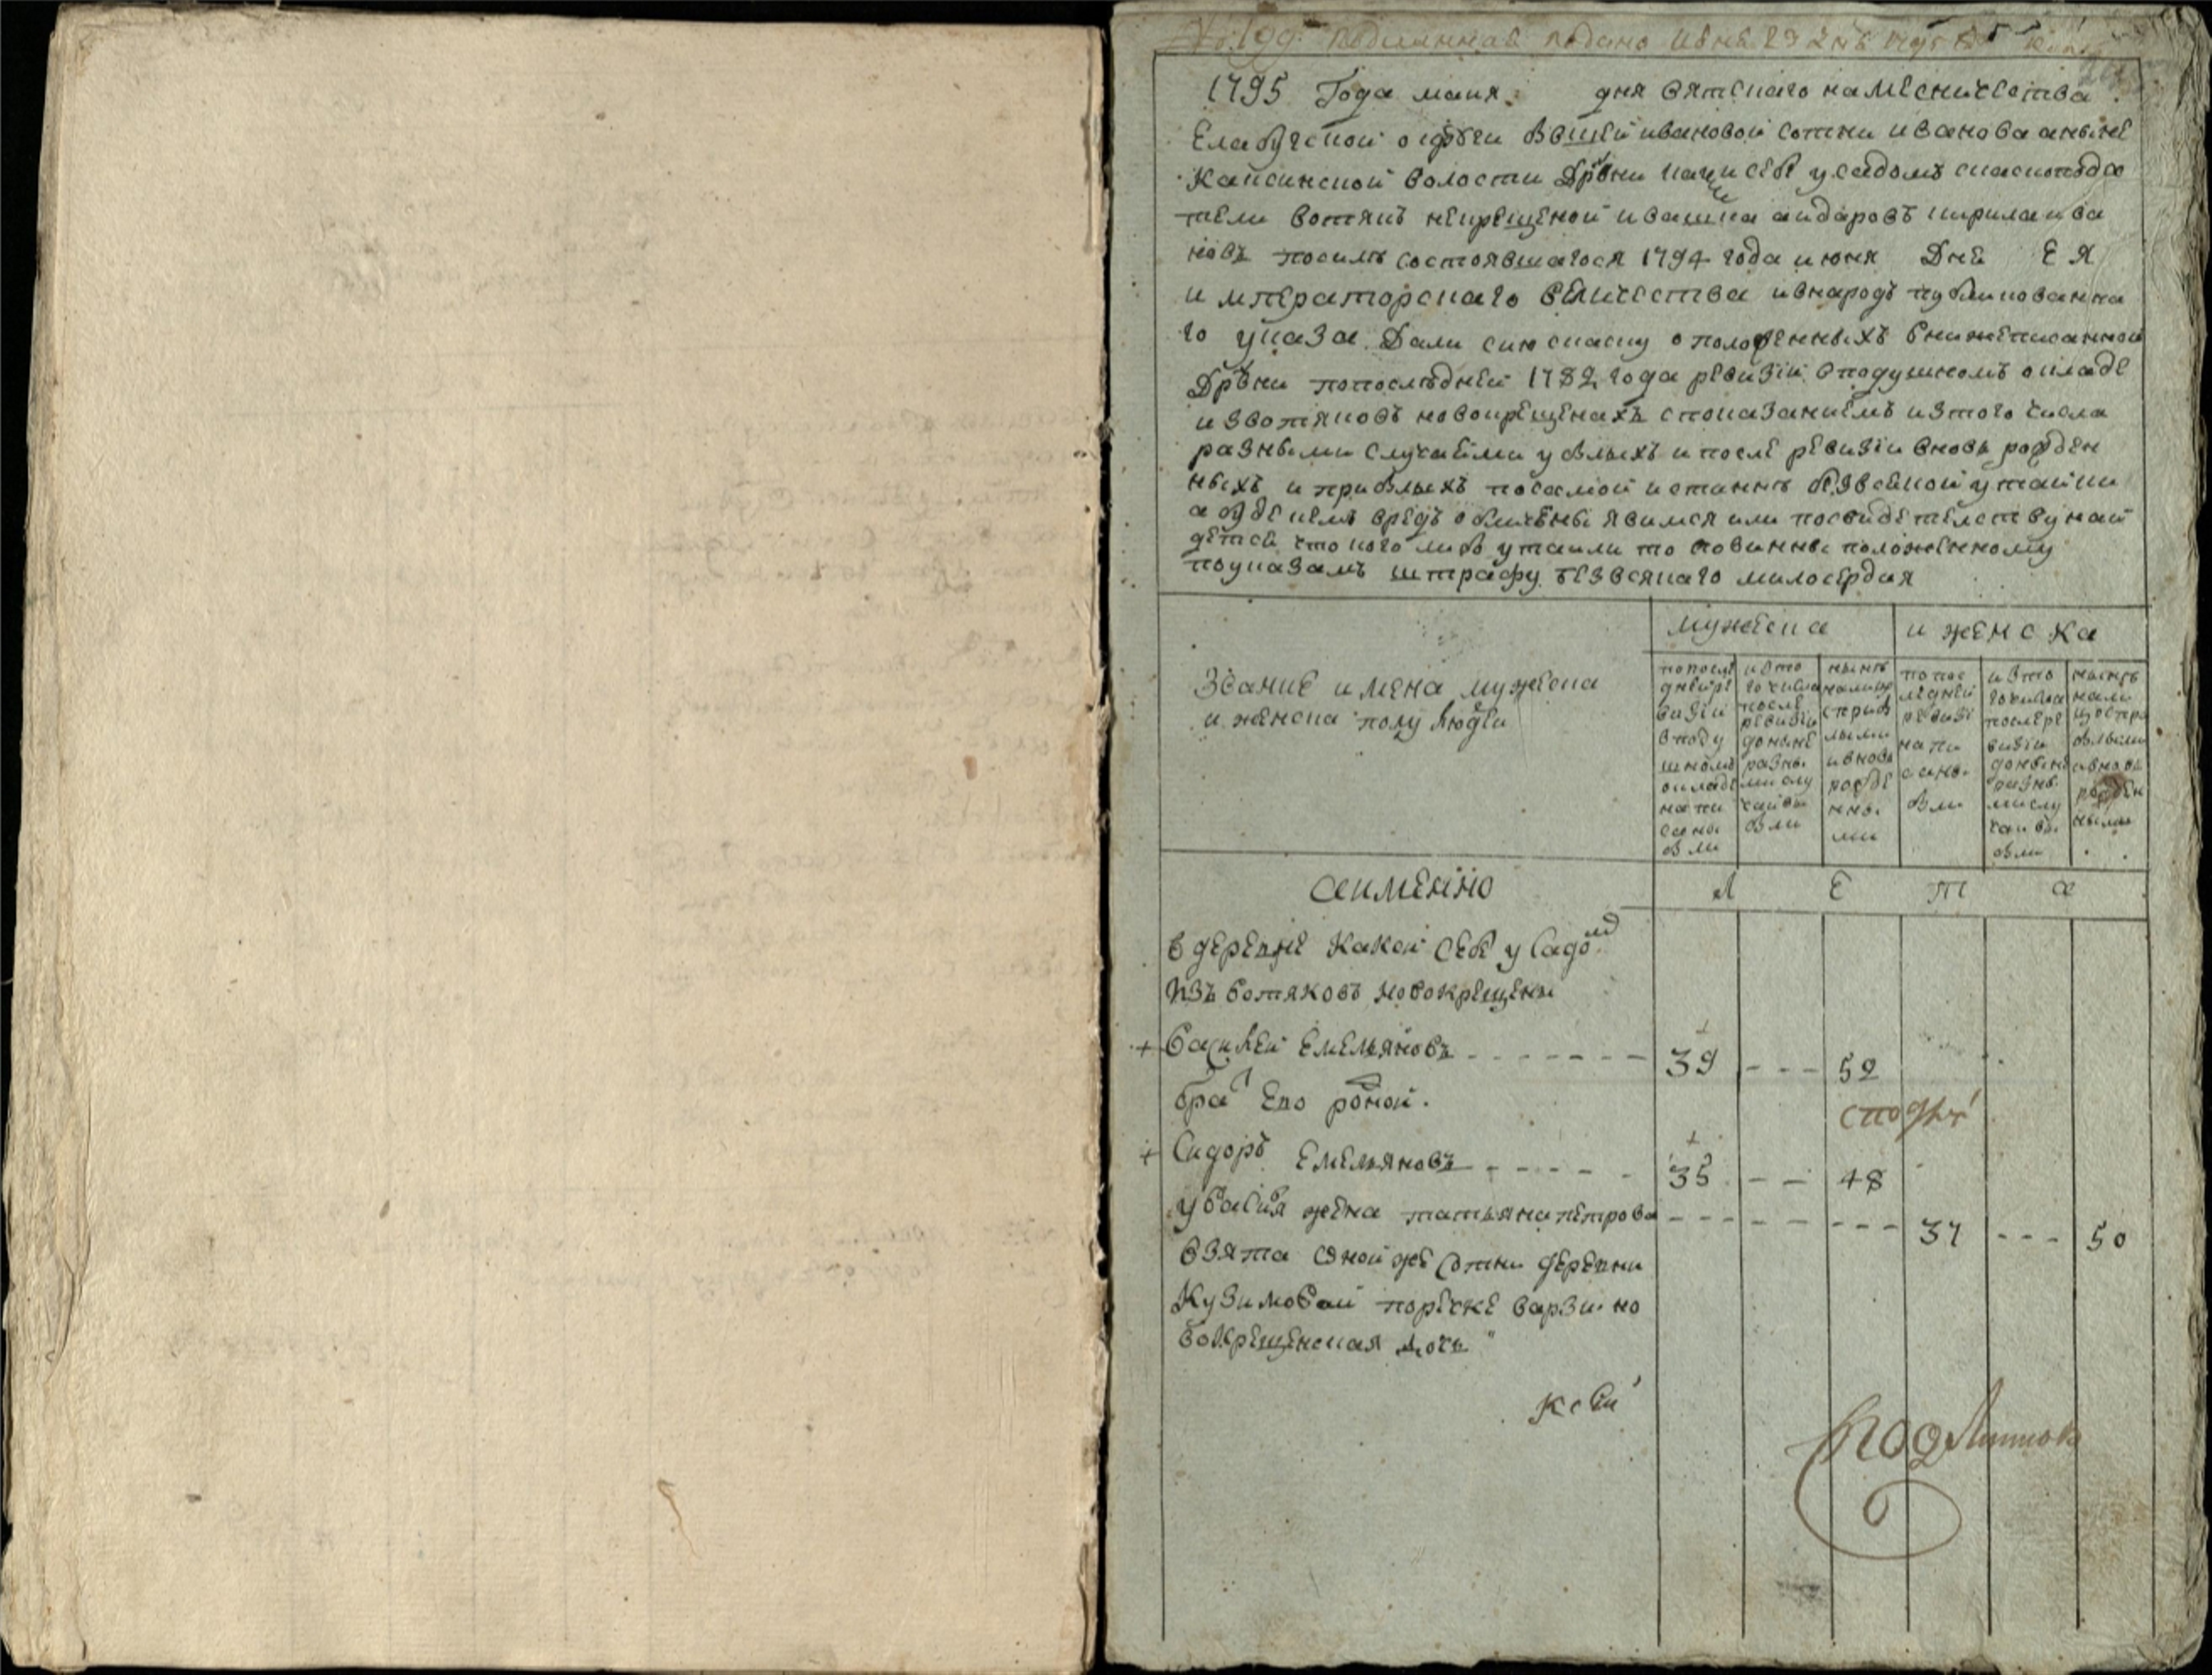 подлинная подано июня 29 дня
1795 Года маия дня вятскаго намесничества
Елабугской округи бвшей ивановой сотни иванова аныне
кайсинской волости Дрвни какси себе усадомъ сказкопода
тели вотякъ некрещеной ивашка айдаровъ кирила ива
новъ посилѣ состоявшагося 1794 года июня Дне Е Я
императорскаго величества ивнародъ публикованна
го указа Дали сию скаску о положенныхъ внижеписанной
Дрвни попоследней 1782 года ревизіи вподушномъ окладе
извотяковъ новокрещенахъ споказаниемъ изтого числа
разными случаеми ублыхъ и после ревизіи вновь рожден
ныхъ и прибылыхъ посамой истиннѣ безвсякой утайки
а буде чемъ вредъ обличены явимся или посвидетелству най
детса что кого либо утаили то повинны положенному
поуказамъ штрафу безвсякаго милосердия
мужеска и женска
Звание имена мужеска
и женска полу людеи
попосле дней ре визіи вподу шномъ окладе напи саны были
ивто го числа после ревизіи доныне разны ми слу чаи вы были
нынѣ налицо сприб лыми ивновь рожде нны ми
попос ледней ревизі напи саны были
ивто го числа после ре визіи доныне разны ми слу чаи вы были
нынѣ нали цо спри былыми ивновь рожден ными
аименно
Л Е Т А
в деревне Какси Себе у Садомъ
Изъ вотяковъ новокрещены
+ Василей Емельяновъ 39 52
братъ Ево роной
+ Сидоръ Емельяновъ 35 48
у Василя жена татьяна петрова 37 50
взята оной же сотни деревни
Кузимовой поречке варзи но
вокрещенская дочь
к сей